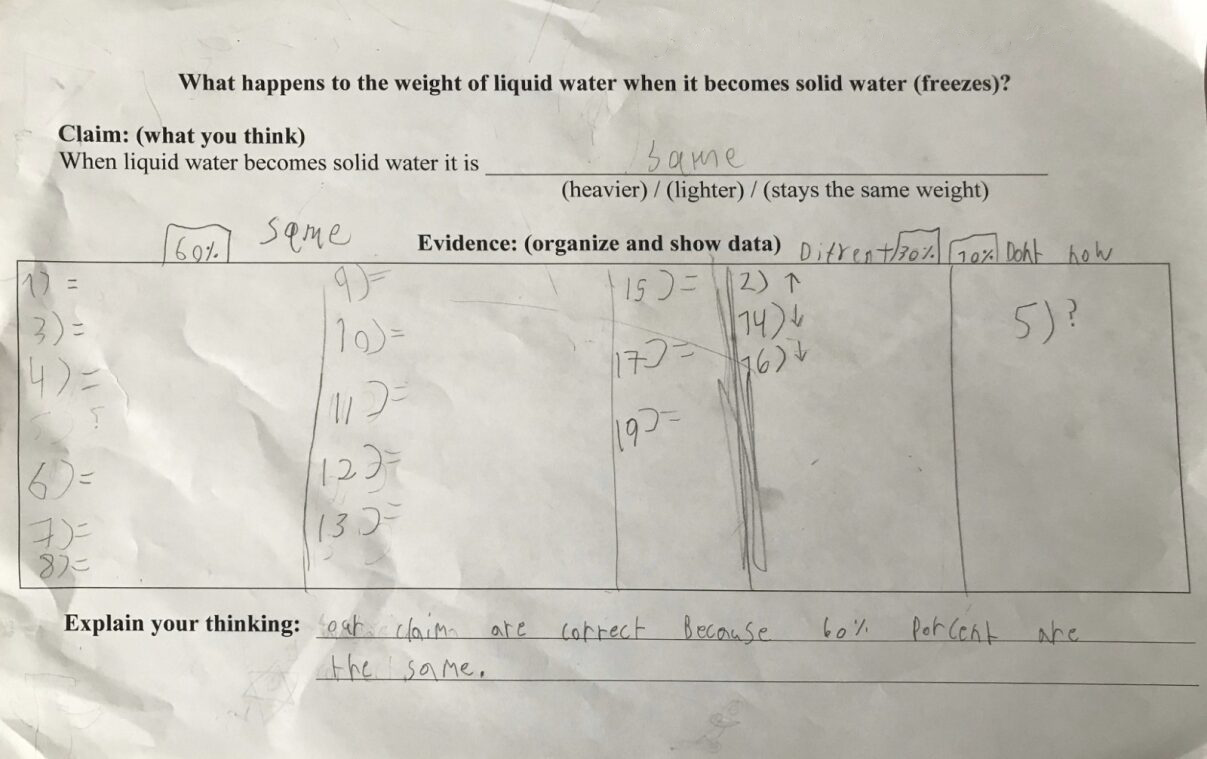 What happens to the weight of liquid water when it becomes solid water (freezes)?
Claim: (what you think)
When liquid water becomes solid water it is same
(heavier) / (lighter) / (stays the same weight)
60% same Evidence: (organize and show data) Diffrent 30% 10% Doht how
1) = 9)= 15)= 2) ↑
3)= 10)= 14)↓ 5)?
4)= 17)= 16)↓
5) ? 11)= 19)=
6)= 12)=
7)= 13)=
8)=
Explain your thinking: our claim are correct Because 60% Porcent are
the same.